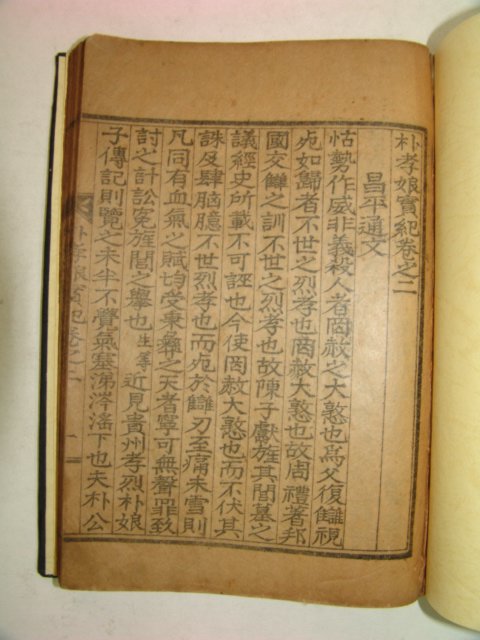 朴孝娘實紀卷之二
昌平通文
怙勢作威非義殺人者罔赦之大憝也爲父復讎視
死如歸者不世之烈孝也罔赦大憝也故周禮著邦
國交讎之訓不世之烈孝也故陳子獻旌其閭墓之
議經史所載不可誣也今使罔赦大憝也而不伏其
誅及肆腦臆不世烈孝也而死於讎刃至痛未雪則
凡同有血氣之賦均受秉彝之天者寧可無聲罪致
討之計訟寃旌閭之擧也生等近見貴州孝烈朴娘
子傳記則覽之未半不覺氣塞涕泗滛下也夫朴公
朴孝娘實紀卷之二 一